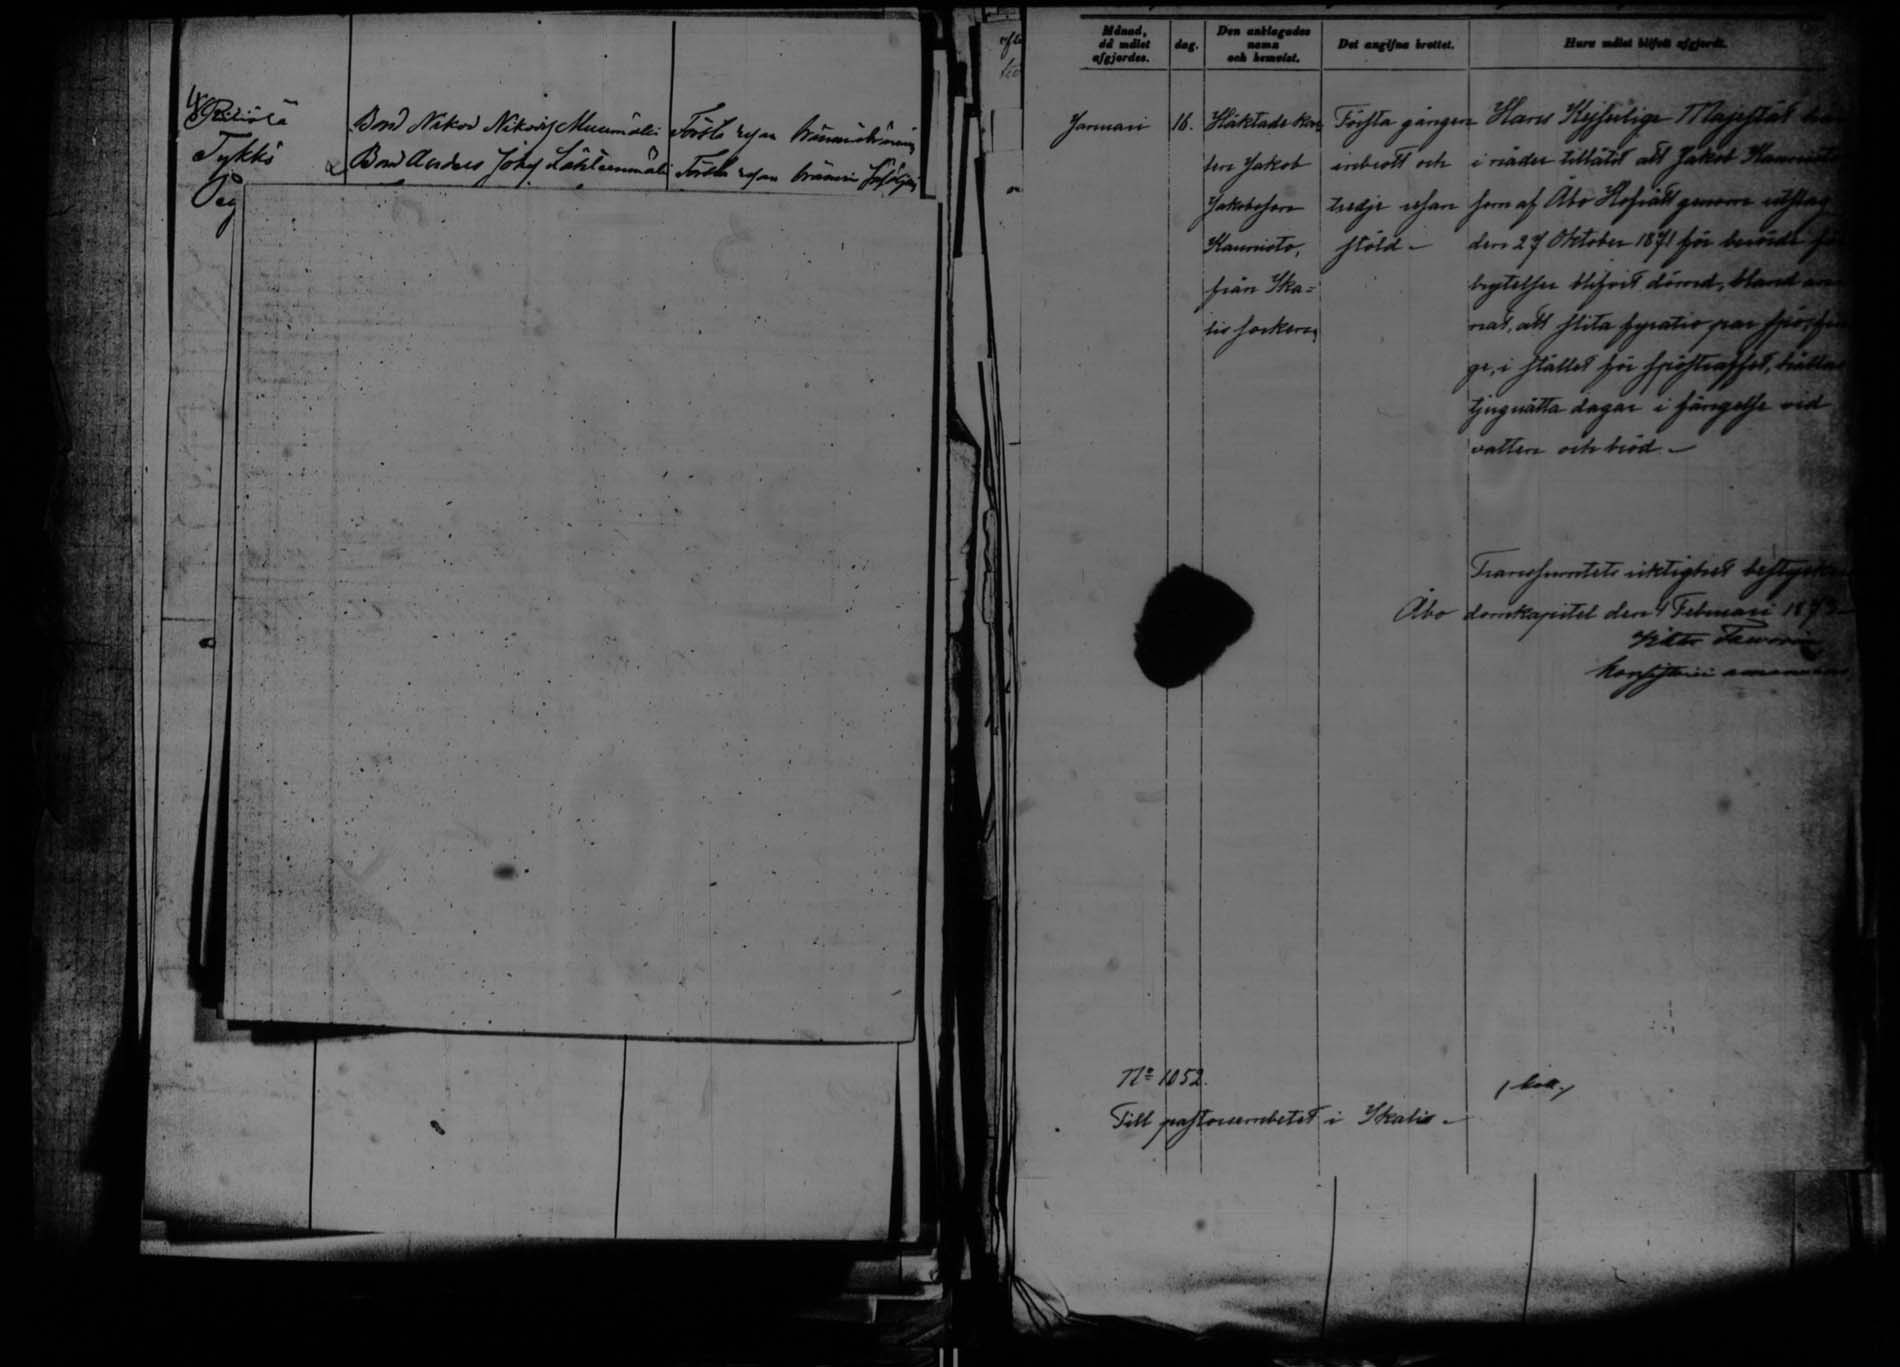 Tykkö
Bond Nikod Nikodsf Muumäki Första resan
Bond Anders Johsf Första resan
Månad, då målet afgjordes.
dag.
Den anklagades namn och hemvist.
Det angifna brottet.
Huru målet blifvit afgjordt.
Januari 16.
Häktade
Jakob
Jakobsson
Kaunisto,
från Ika=
lis socken,
Första gången
inbrott och
tredje resan
stöld
Hans Kejserlige Majestät
i nåder tillåtit att Jakob Kaunisto
som af Åbo Hofrätt genom utslag
den 27 Oktober 1871 för berörde för
brytelser blifvit dömd, bland an
nat, att slita fyratio par spö, fin
ge, i stället för spöstraffet, hållas
tjuguåtta dagar i fängelse vid
vatten och bröd.
Transsumtets riktighet bestyrker
Åbo domkapitel den 1 Februari
Konsistorii amanuens
No 1052.
Till pastorsembetet i Ikalis